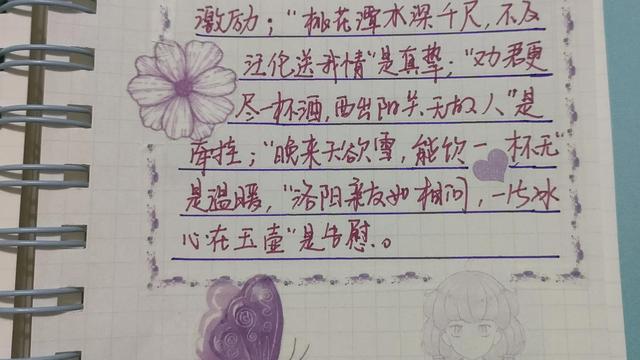 激励；“桃花潭水深千尺，不及
汪伦送我情”是真挚；“劝君更
尽一杯酒，西出阳关无故人”是
牵挂；“晚来天欲雪，能饮一杯无”
是温暖，“洛阳亲友如相问，一片冰
心在玉壶”是告慰。